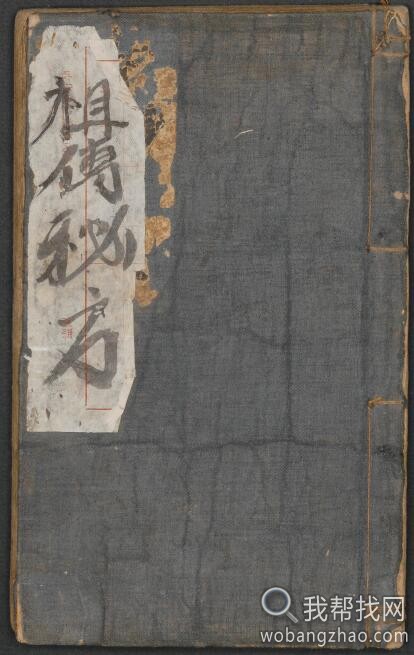 祖傳秘方
我帮找网
wobangzhao.com